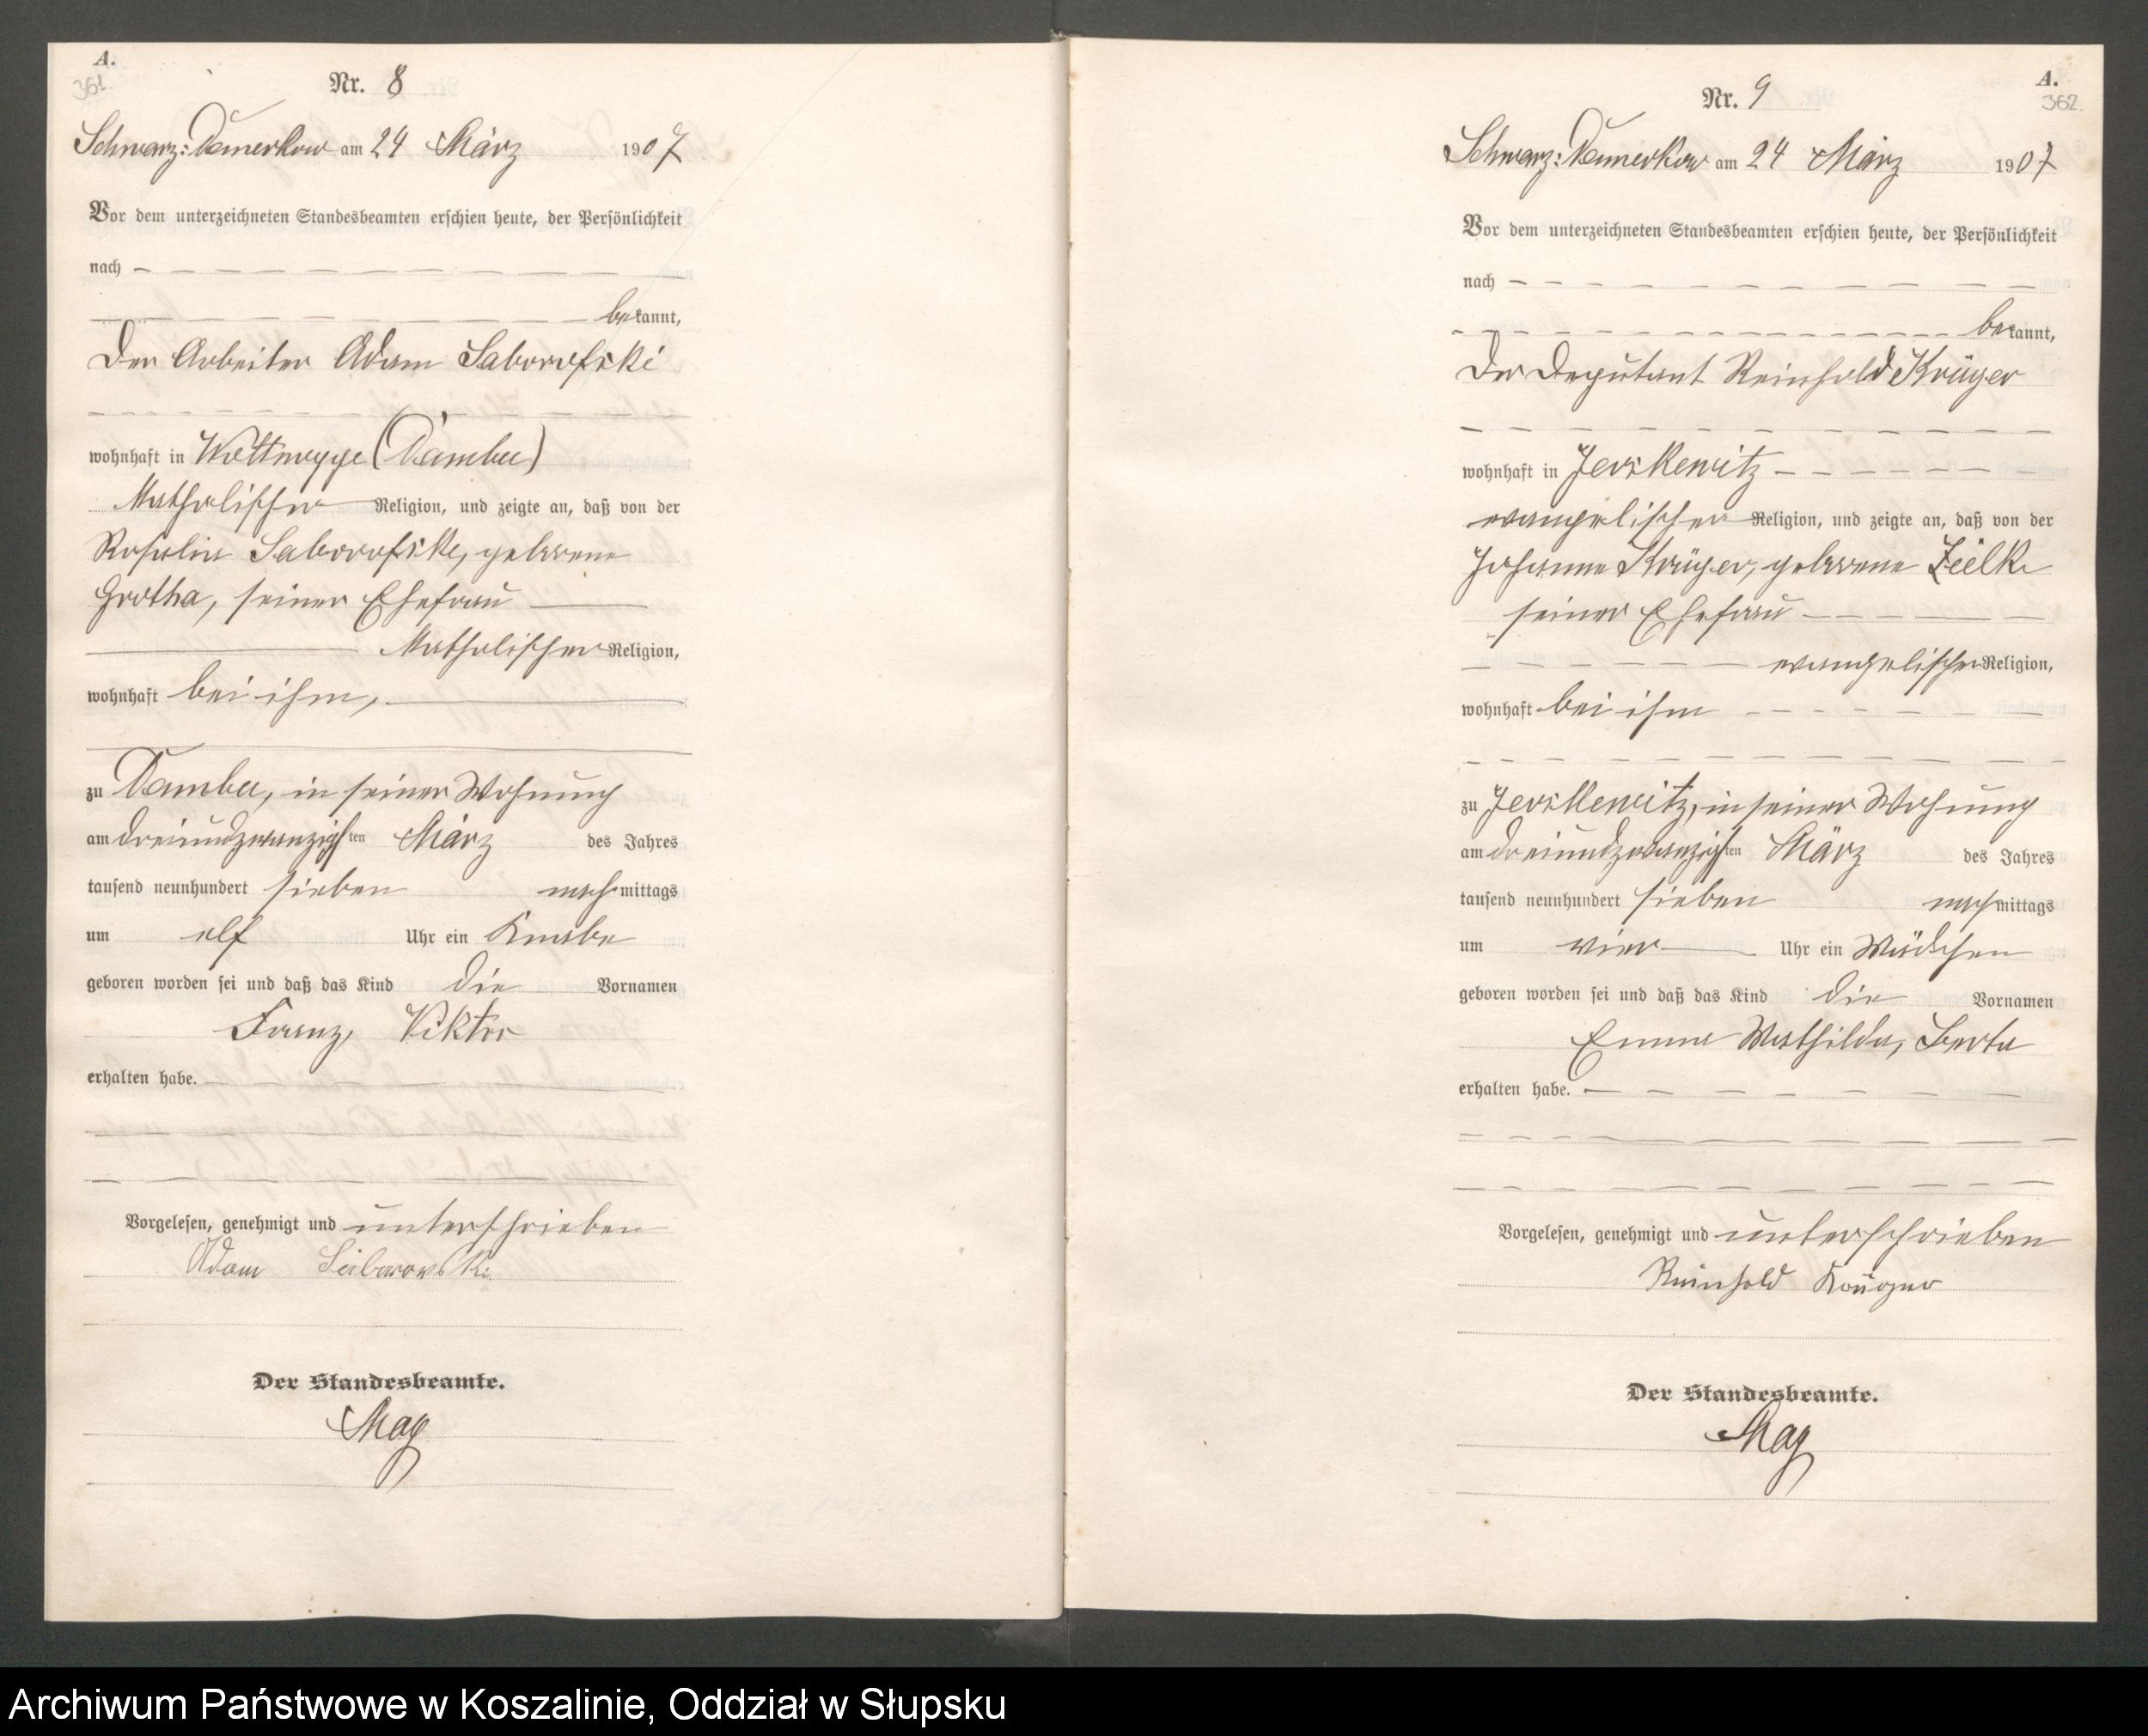 A.
361.
Nr. 8
Schwarz-Damerkow am 24 März 1907
Vor dem unterzeichneten Standesbeamten erschien heute, der Persönlichkeit
nach
bekannt,
Der Arbeiter Adam Saborofski
wohnhaft in (Dambee)
Katholischer Religion, und zeigte an, daß von der
Rosalia Saborofski, geborene
Grotha, seiner Ehefrau
Katholischer Religion,
wohnhaft bei ihm,
zu Dambee, in seiner Wohnung
am dreiundzwanzigsten März des Jahres
tausend neunhundert sieben nachmittags
um elf Uhr ein Knabe
geboren worden sei und daß das Kind die Vornamen
Franz, Viktor
erhalten habe.
Vorgelesen, genehmigt und unterschrieben
Adam Saborowski
Der Standesbeamte.
May
A.
362.
Nr. 9
Schwarz-Damerkow am 24 März 1907
Vor dem unterzeichneten Standesbeamten erschien heute, der Persönlichkeit
nach
bekannt,
Der Deputant Reinhold Krüger
wohnhaft in Jerskewitz
evangelischer Religion, und zeigte an, daß von der
Johanna Krüger, geborene Zielke
seiner Ehefrau
evangelischer Religion,
wohnhaft bei ihm
zu Jerskewitz, in seiner Wohnung
am dreiundzwanzigsten März des Jahres
tausend neunhundert sieben nachmittags
um vier Uhr ein Mädchen
geboren worden sei und daß das Kind die Vornamen
Emma Mathilda, Berta
erhalten habe.
Vorgelesen, genehmigt und unterschrieben
Reinhold Krüger
Der Standesbeamte.
May
Archiwum Państwowe w Koszalinie, Oddział w Słupsku